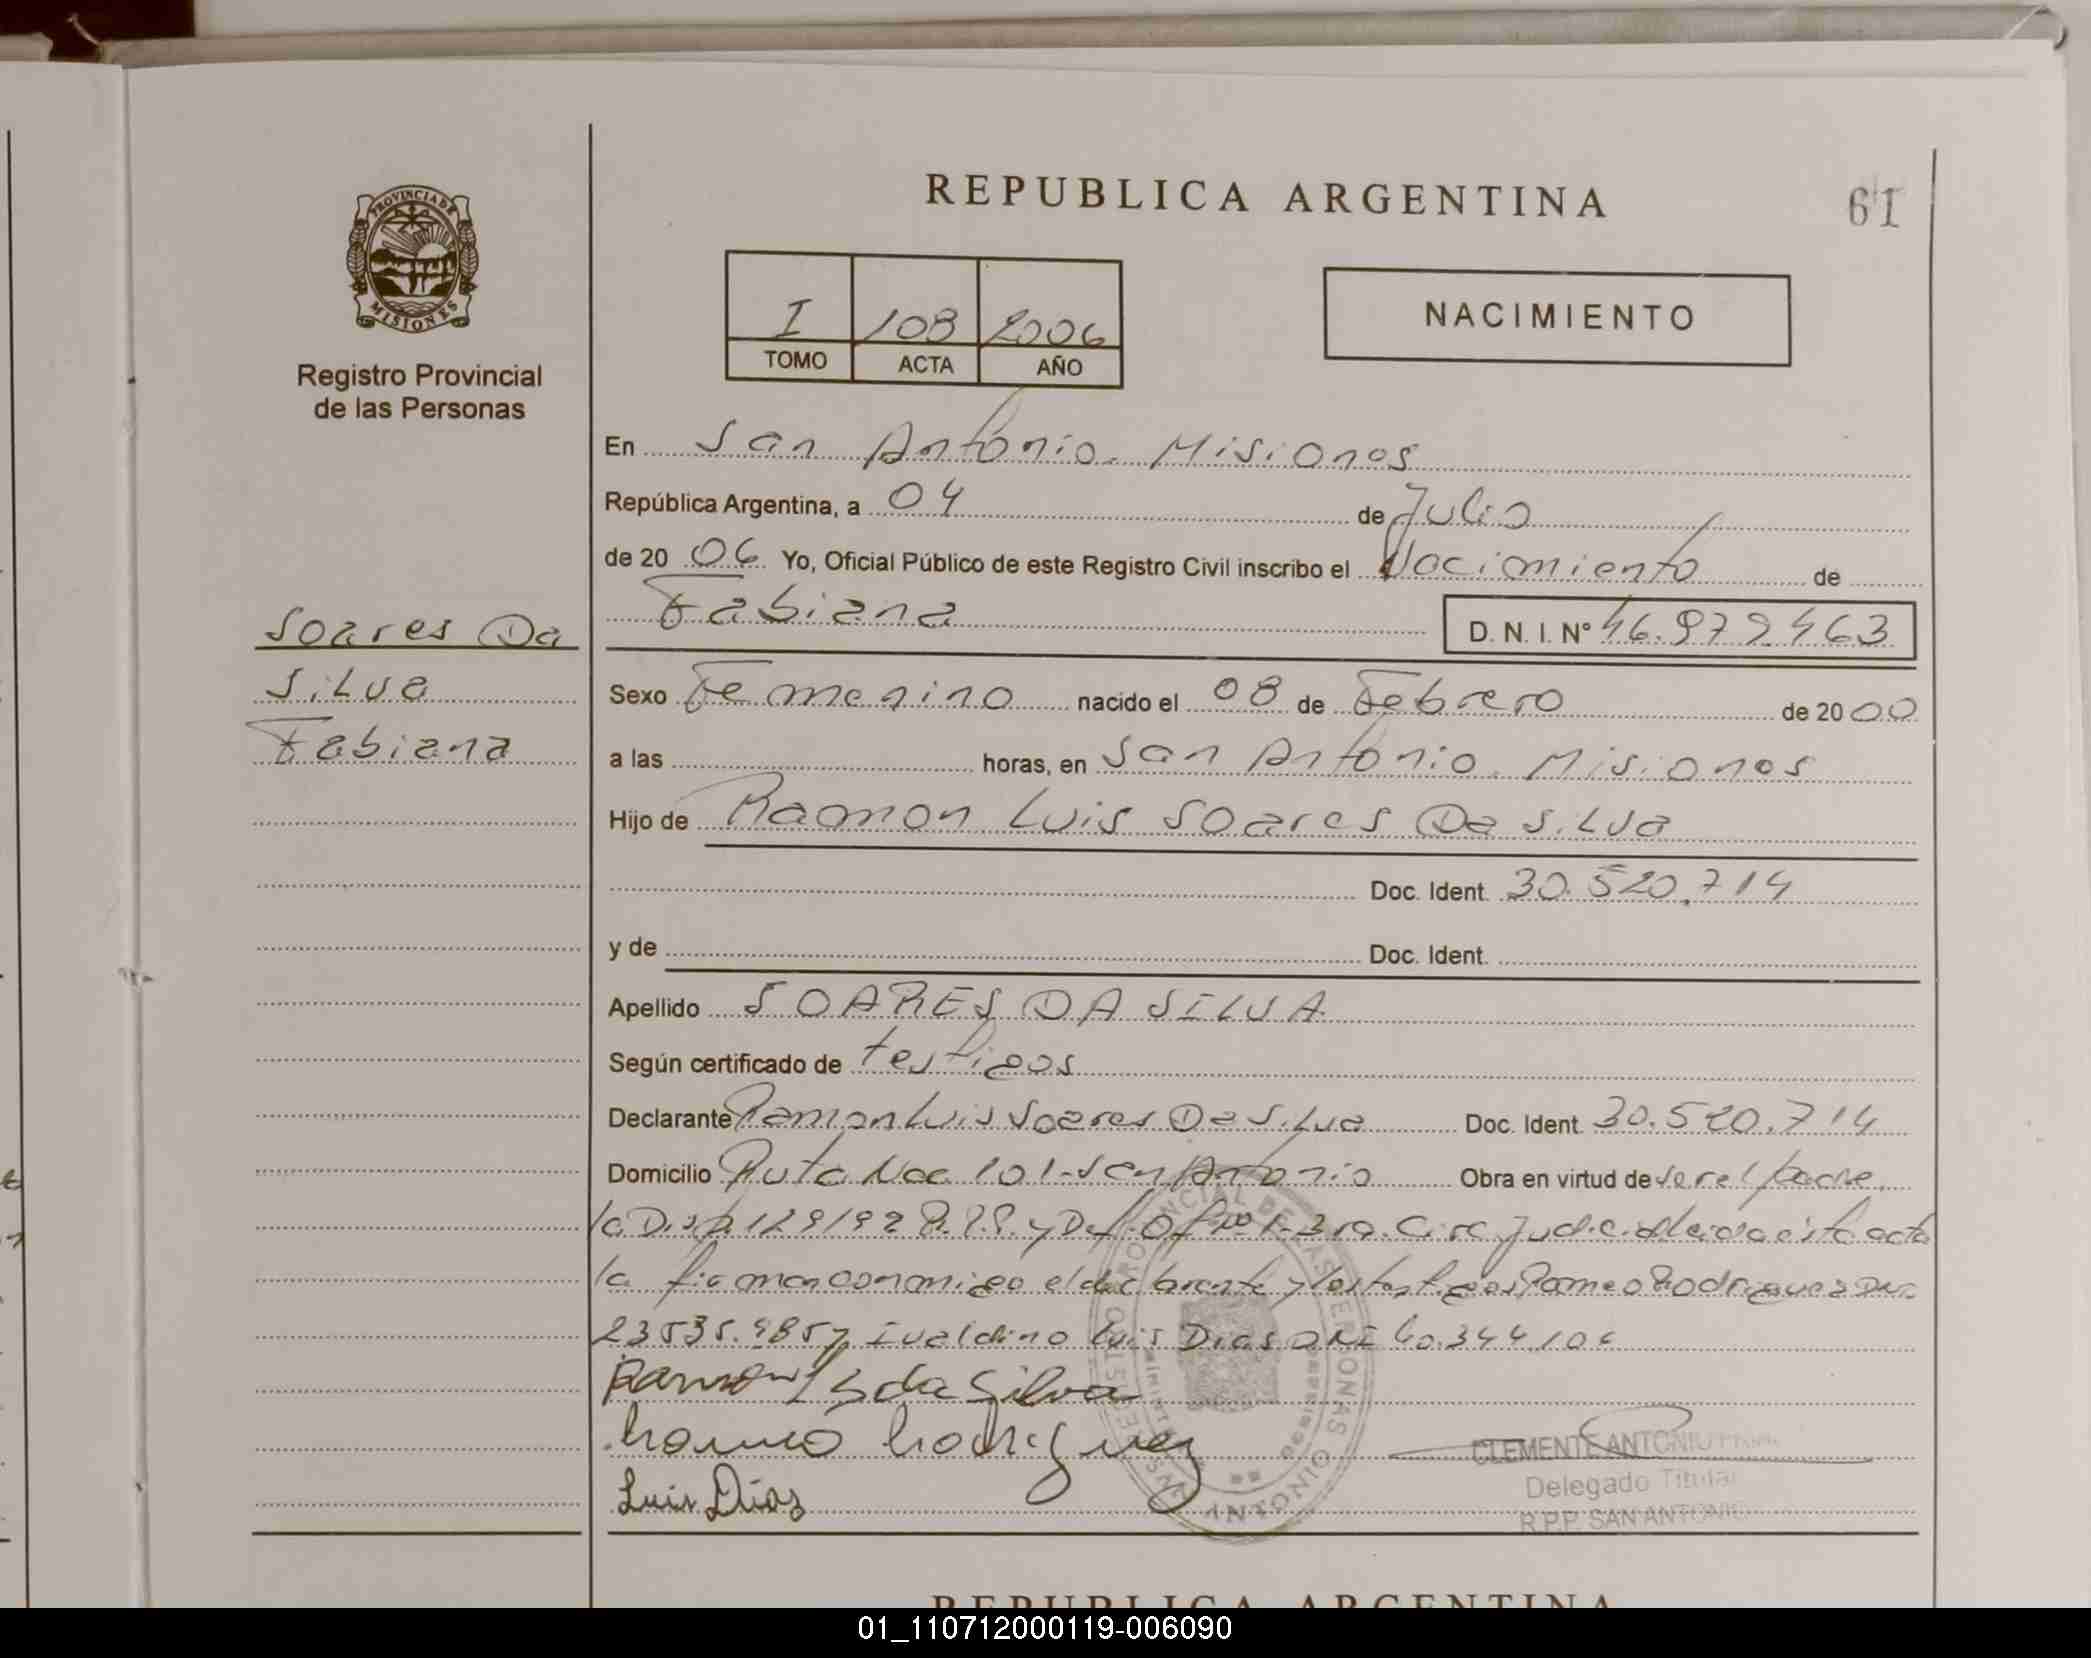 REPUBLICA ARGENTINA
61
PROVINCIA DE
MISIONES
Registro Provincial
de las Personas
I 108 2006
TOMO ACTA AÑO
NACIMIENTO
En San Antonio. Misiones
República Argentina, a 04 de Julio
de 20 06 Yo, Oficial Público de este Registro Civil inscribo el Nacimiento de
Fabiana D. N. I. Nº 46.979.463
Soares Da
Silva
Fabiana
Sexo Femenino nacido el 08 de Febrero de 20 00
a las horas, en San Antonio. Misiones
Hijo de Ramon Luis Soares Da Silva
Doc. Ident. 30.520.714
y de Doc. Ident.
Apellido SOARES DA SILVA
Según certificado de testigos
Declarante Ramon Luis Soares Da Silva Doc. Ident. 30.520.714
Domicilio Ruta Nac 101-San Antonio Obra en virtud de ser el padre.
la Disp. 129/92 R.P.P. y Def. Of. Nº 1-3ra. Circ Judic. Leida esta acta
la firman conmigo el declarante y los testigos Romeo Rodriguez
y Ivaldino Luis Dias DNI 60.344.104
Ramon L S da Silva
Rodriguez
Luis Dias
REGISTRO PROVINCIAL DE LAS PERSONAS
SAN ANTONIO
CLEMENTE ANTONIO
Delegado Titular
R.P.P. SAN ANTONIO
REPUBLICA ARGENTINA
01_110712000119-006090